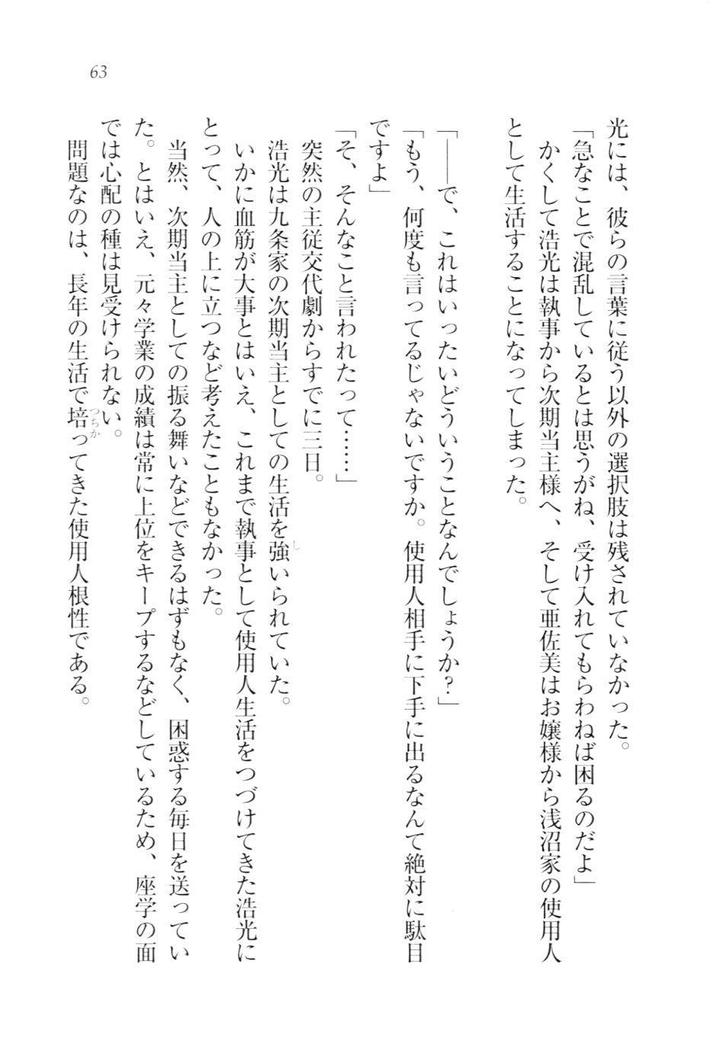 63
光には、彼らの言葉に従う以外の選択肢は残されていなかった。
「急なことで混乱しているとは思うがね、受け入れてもらわねば困るのだよ」
かくして浩光は執事から次期当主様へ、そして亜佐美はお嬢様から浅沼家の使用人
として生活することになってしまった。
「――で、これはいったいどういうことなんでしょうか？」
「もう、何度も言ってるじゃないですか。使用人相手に下手に出るなんて絶対に駄目
ですよ」
「そ、そんなこと言われたって……」
突然の主従交代劇からすでに三日。
浩光は九条家の次期当主としての生活を強いられていた。
いかに血筋が大事とはいえ、これまで執事として使用人生活をつづけてきた浩光に
とって、人の上に立つなど考えたこともなかった。
当然、次期当主としての振る舞いなどできるはずもなく、困惑する毎日を送ってい
た。とはいえ、元々学業の成績は常に上位をキープするなどしているため、座学の面
では心配の種は見受けられない。
問題なのは、長年の生活で培ってきた使用人根性である。